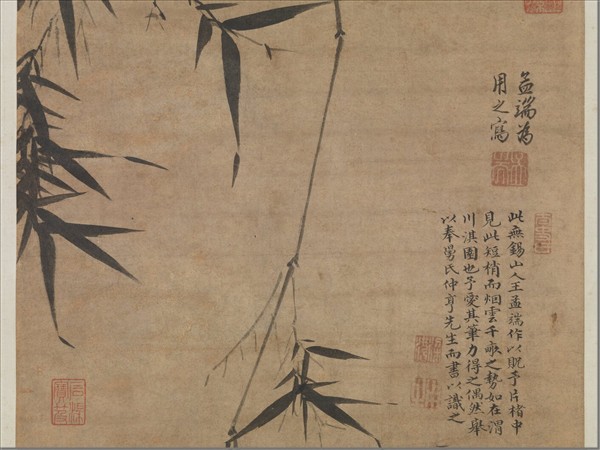 孟端為
用之寫
此無錫山人王孟端作以貺予片楮中
見此短梢而烟雲千畝之勢如在渭
川淇園也予愛其筆力得之偶然舉
以奉舅氏仲亨先生而書以識之
石渠寶笈